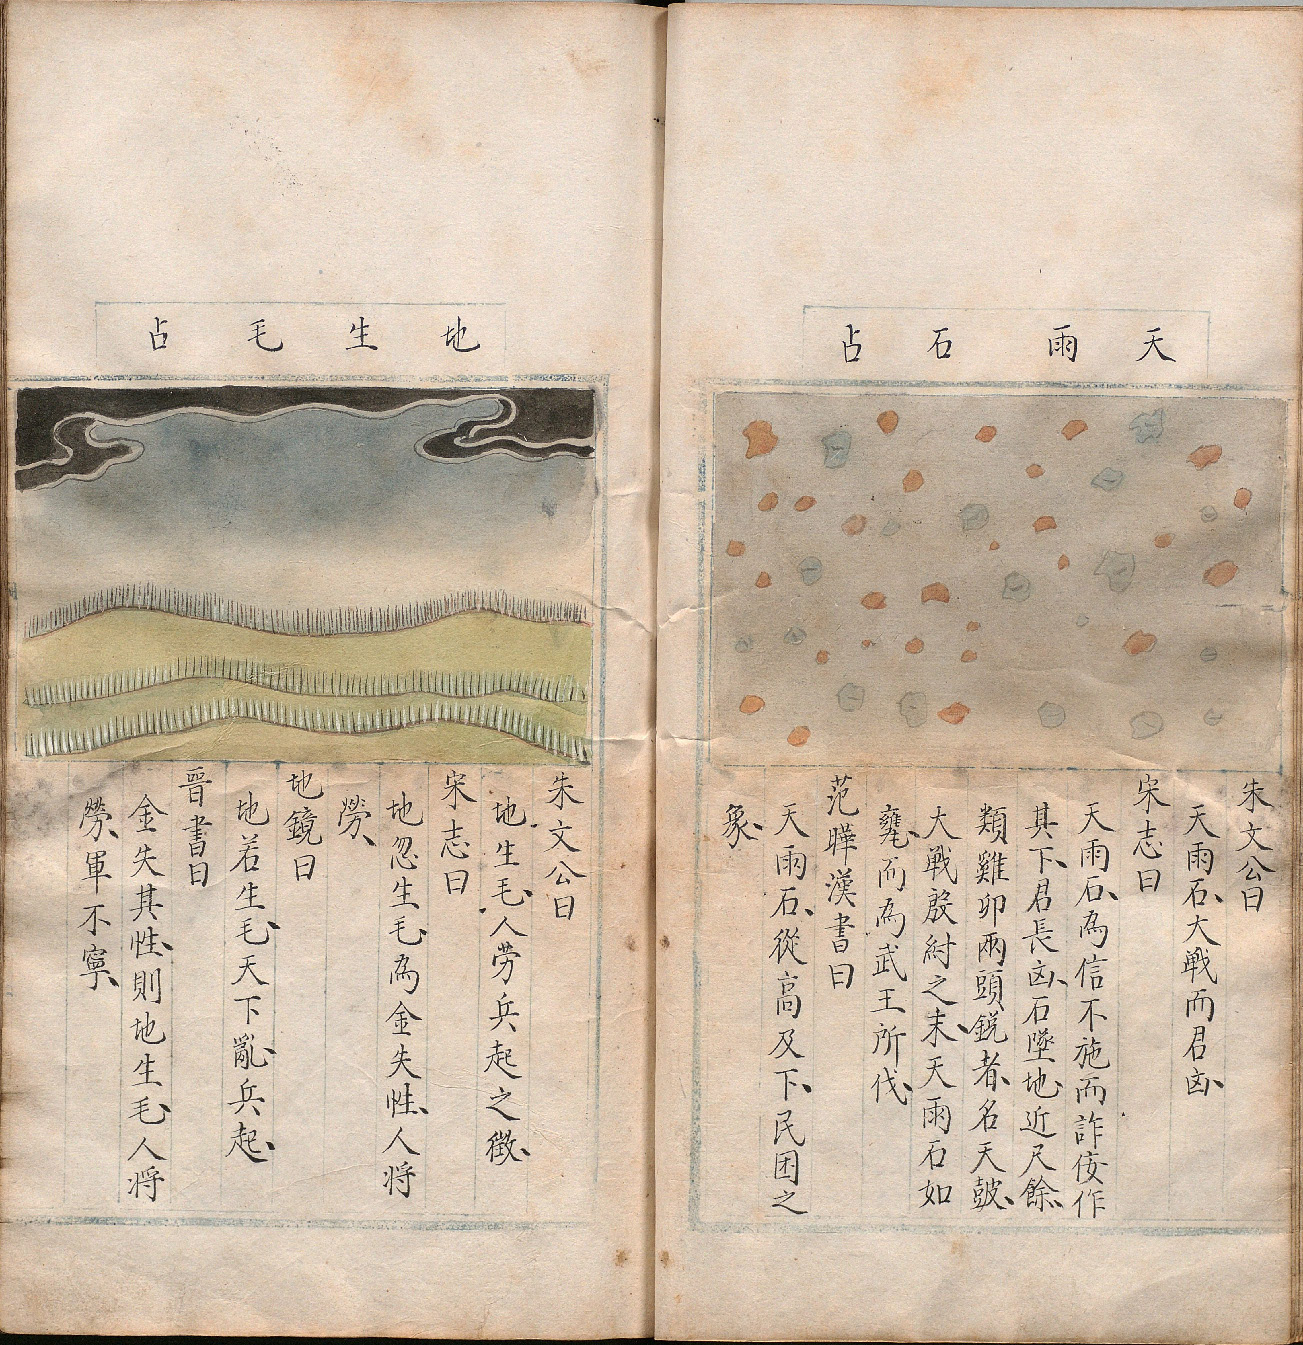 天雨石占
朱文公曰
天雨石大戰而君凶
宋志曰
天雨石為信不施而詐佞作
其下君長凶石墜地近尺餘
類雞卵兩頭銳者名天鼓
大戰殷紂之末天雨石如
甕而為武王所伐
范曄漢書曰
天雨石從高及下民困之
象
地生毛占
朱文公曰
地生毛人劳兵起之徵
宋志曰
地忽生毛為金失性人将
勞
地鏡曰
地若生毛天下亂兵起
晉書曰
金失其性則地生毛人将
勞軍不寧